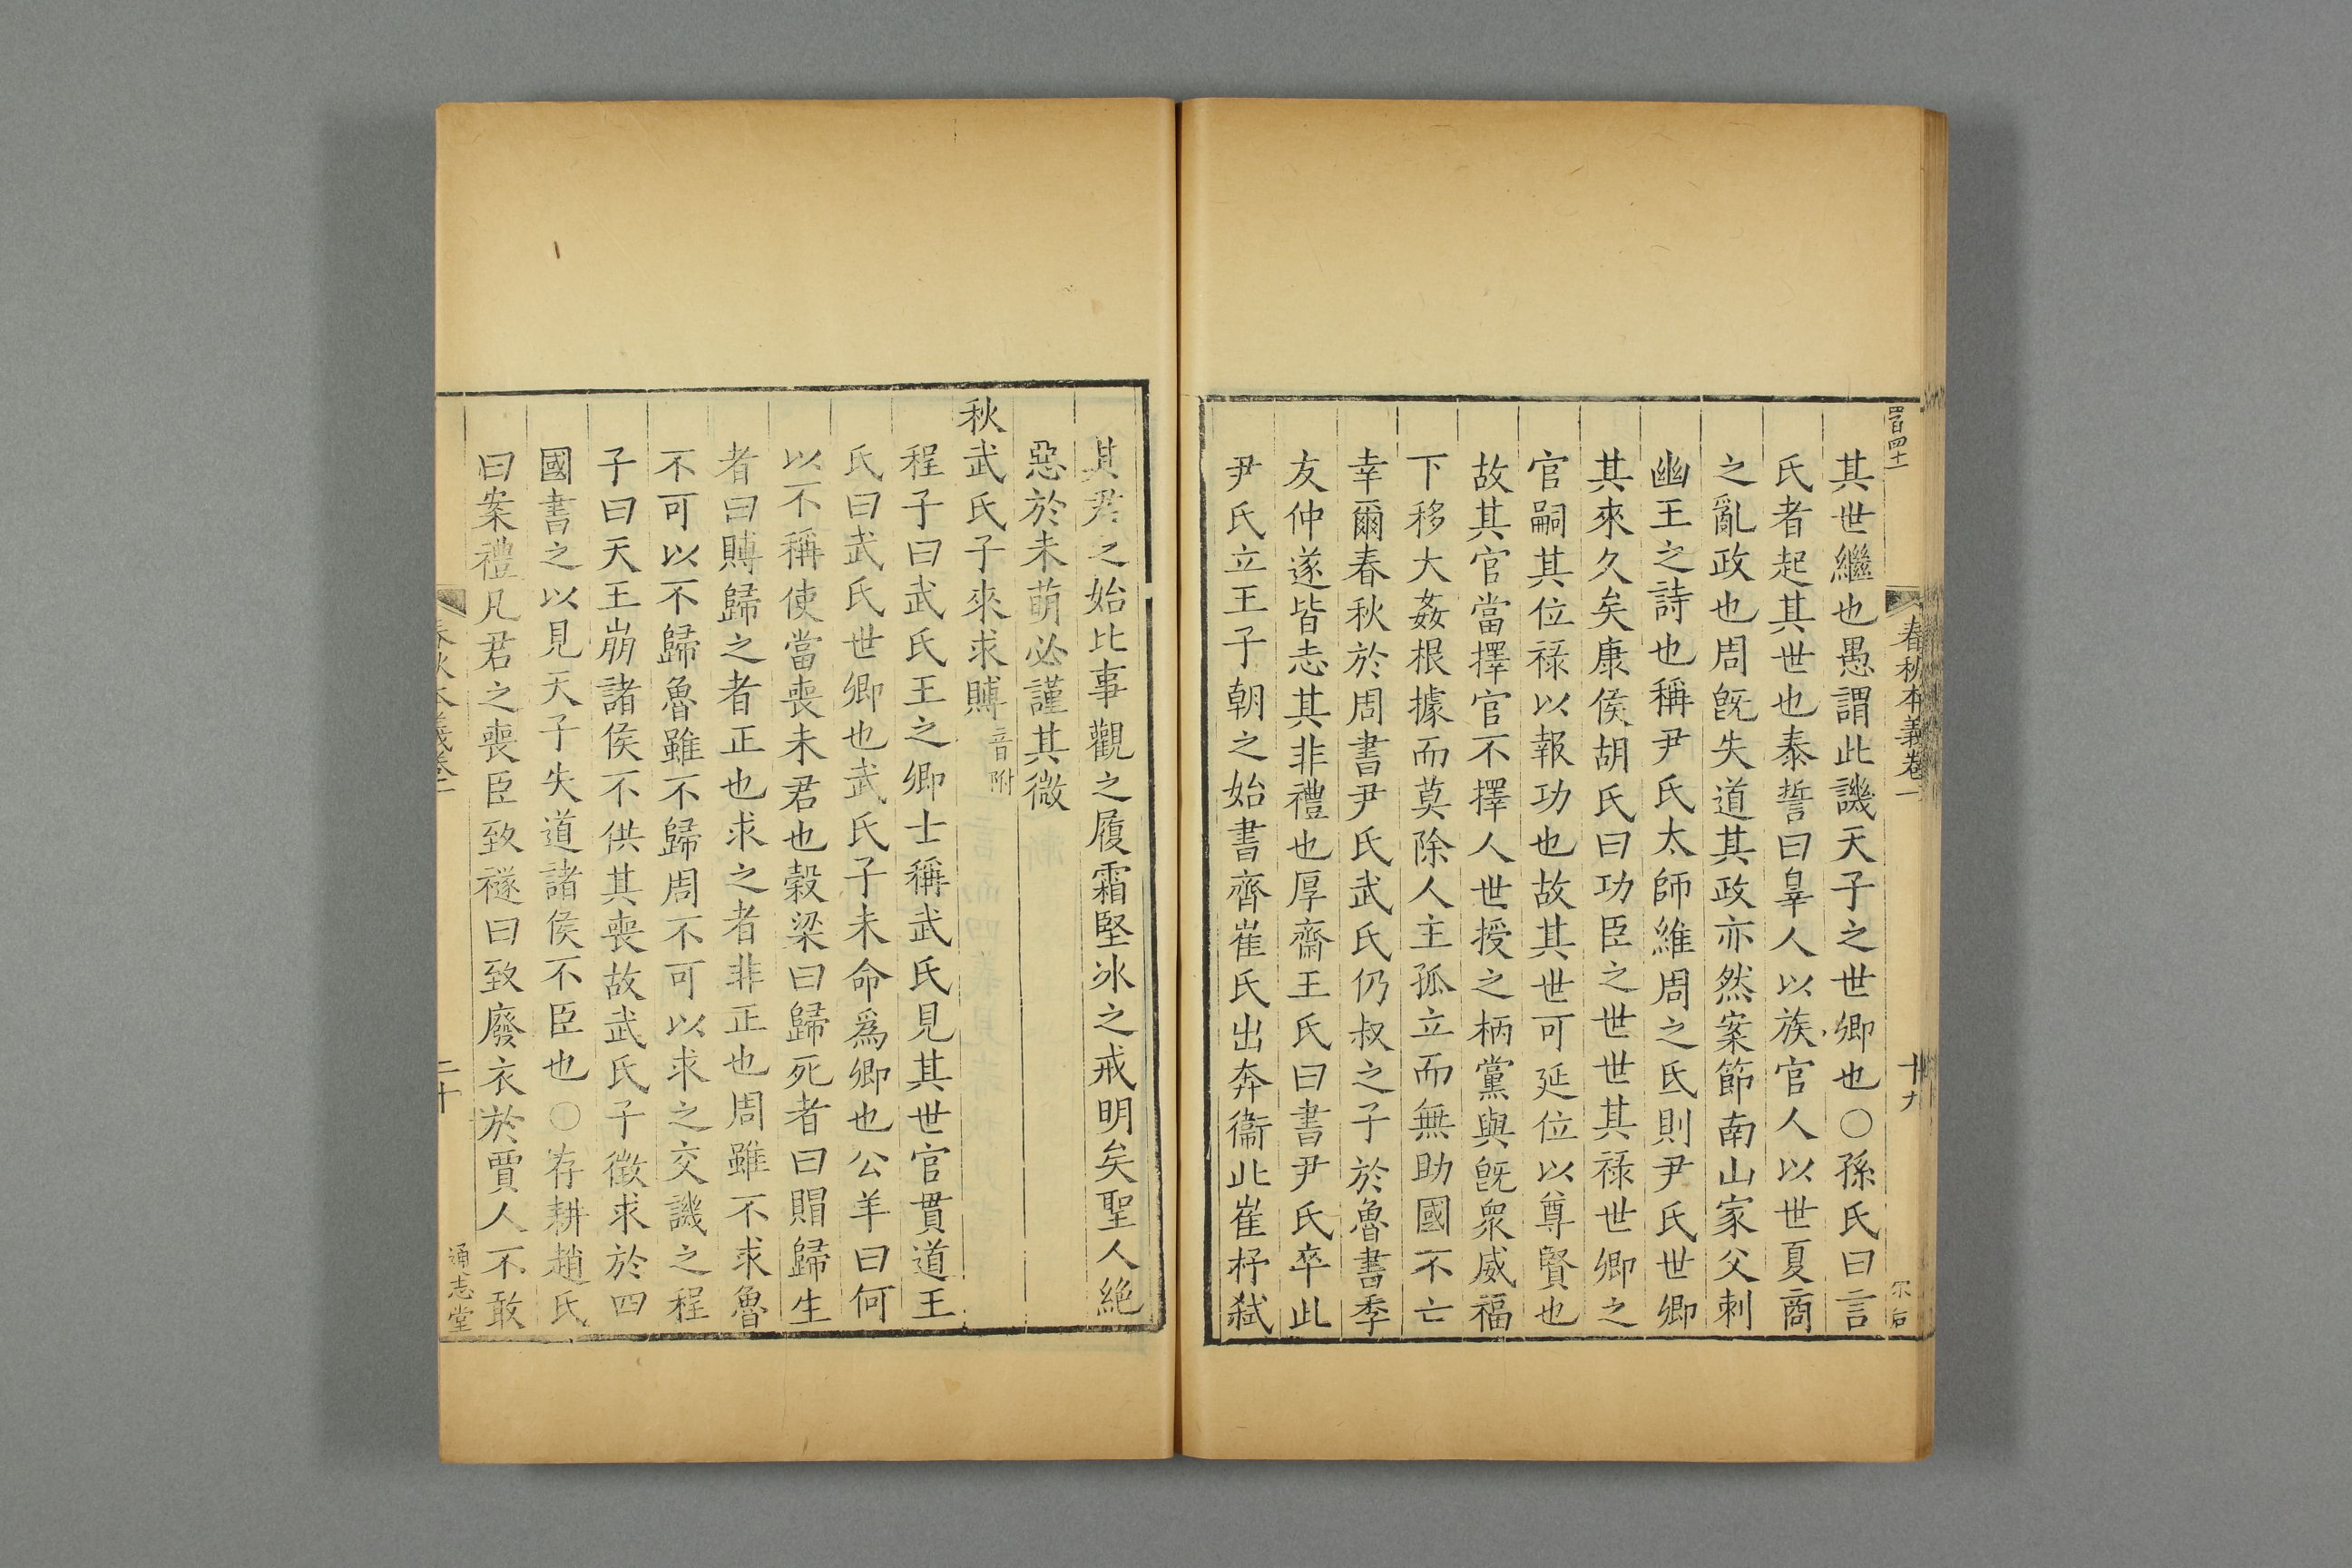 春秋本義卷一
十九
其世繼也愚謂此譏天子之世卿也○孫氏曰言
氏者起其世也泰誓曰辠人以族官人以世夏商
之亂政也周旣失道其政亦然案節南山家父刺
幽王之詩也稱尹氏太師維周之氐則尹氏世卿
其來久矣康侯胡氏曰功臣之世世其祿世卿之
官嗣其位祿以報功也故其世可延位以尊賢也
故其官當擇官不擇人世授之柄黨與旣衆威福
下移大姦根據而莫除人主孤立而無助國不亡
幸爾春秋於周書尹氏武氏仍叔之子於魯書季
友仲遂皆志其非禮也厚齋王氏曰書尹氏卒此
尹氏立王子朝之始書齊崔氏出奔衞此崔杼弑
其君之始比事觀之履霜堅冰之戒明矣聖人絶
惡於未萌必謹其微
秋武氏子來求賻音附
程子曰武氏王之卿士稱武氏見其世官貫道王
氏曰武氏世卿也武氏子未命爲卿也公羊曰何
以不稱使當喪未君也穀梁曰歸死者曰賵歸生
者曰賻歸之者正也求之者非正也周雖不求魯
不可以不歸魯雖不歸周不可以求之交譏之程
子曰天王崩諸侯不供其喪故武氏子徵求於四
國書之以見天子失道諸侯不臣也○存耕趙氏
曰案禮凡君之喪臣致襚曰致廢衣於賈人不敢
春秋本義卷一
二十
通志堂